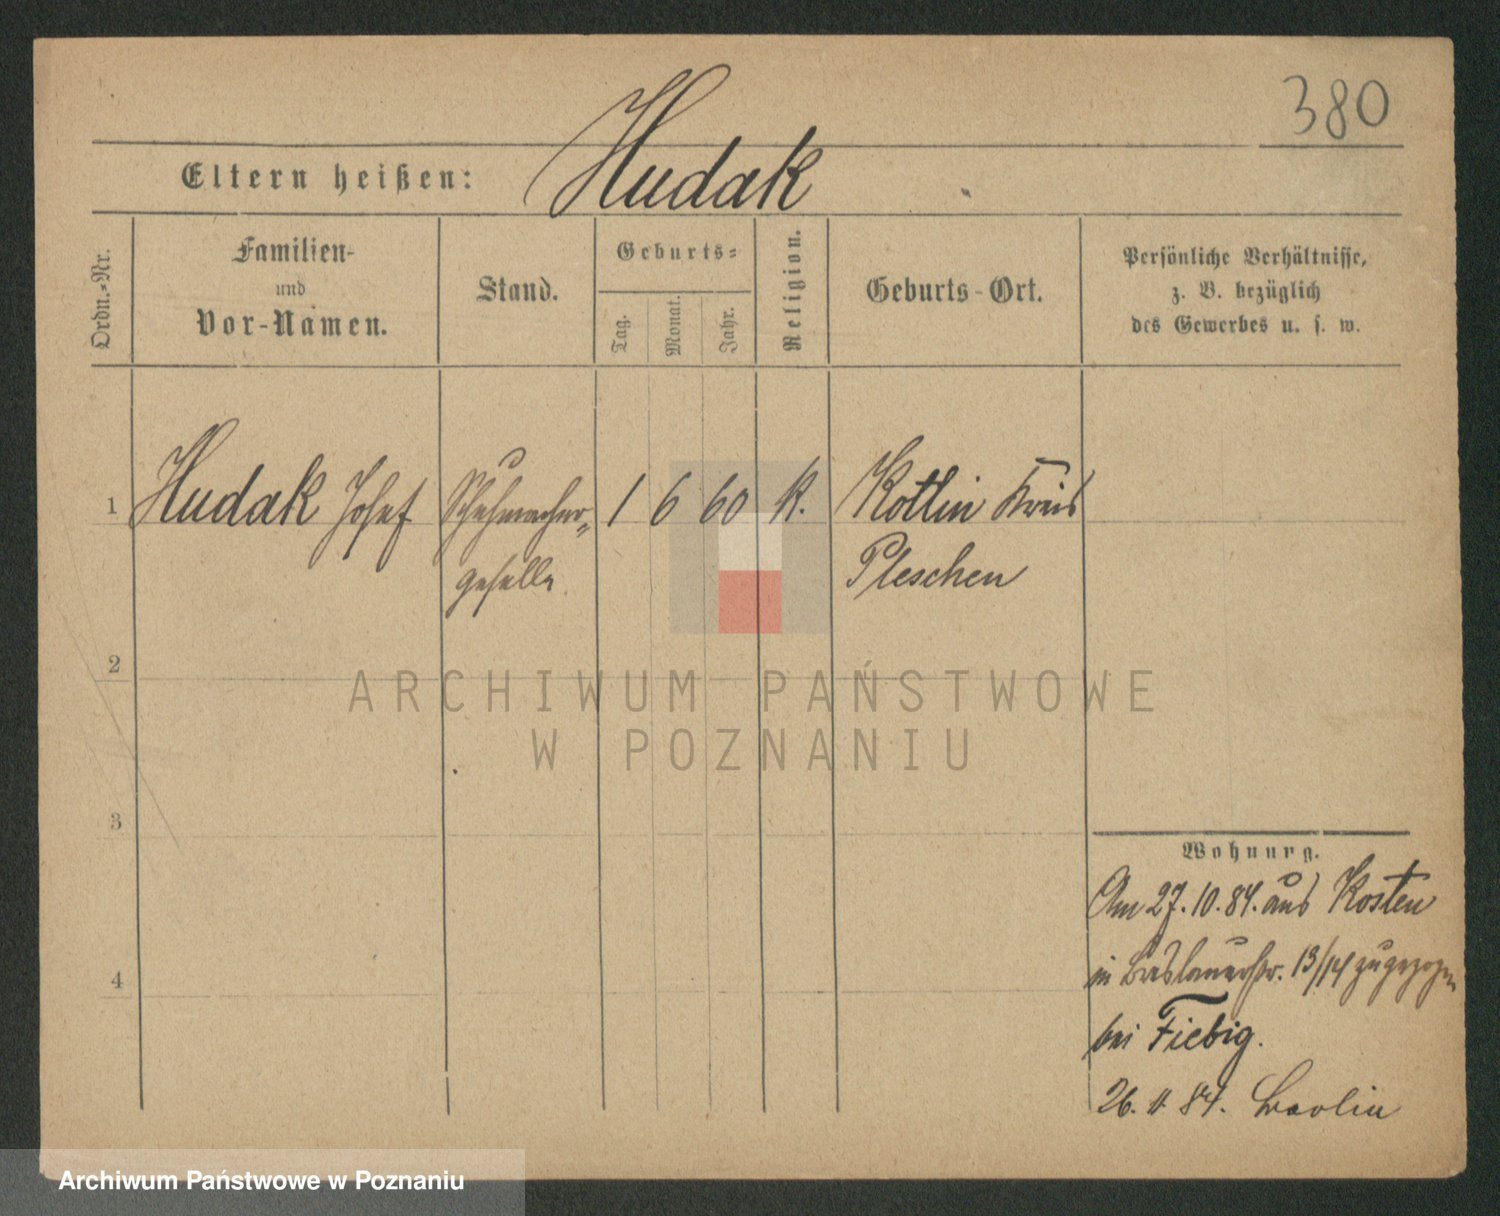 380
Eltern heißen: Hudak
Ordn.-Nr.
Familien-
und
Vor-Namen.
Stand.
Geburts-
Tag.
Monat.
Jahr.
Religion.
Geburts-Ort.
Persönliche Verhältnisse,
z. B. bezüglich
des Gewerbes u. s. w.
1 Hudak Josef Schuhmacher- 1 6 60 k. Kotlin Kreis
geselle Pleschen
2
ARCHIWUM PAŃSTWOWE
W POZNANIU
3
Wohnung.
Am 27.10.84. aus Kosten
in Breslauerstr. 13/14 zugezogen
bei Fiebig.
4
26. 11. 84. Berlin
Archiwum Państwowe w Poznaniu